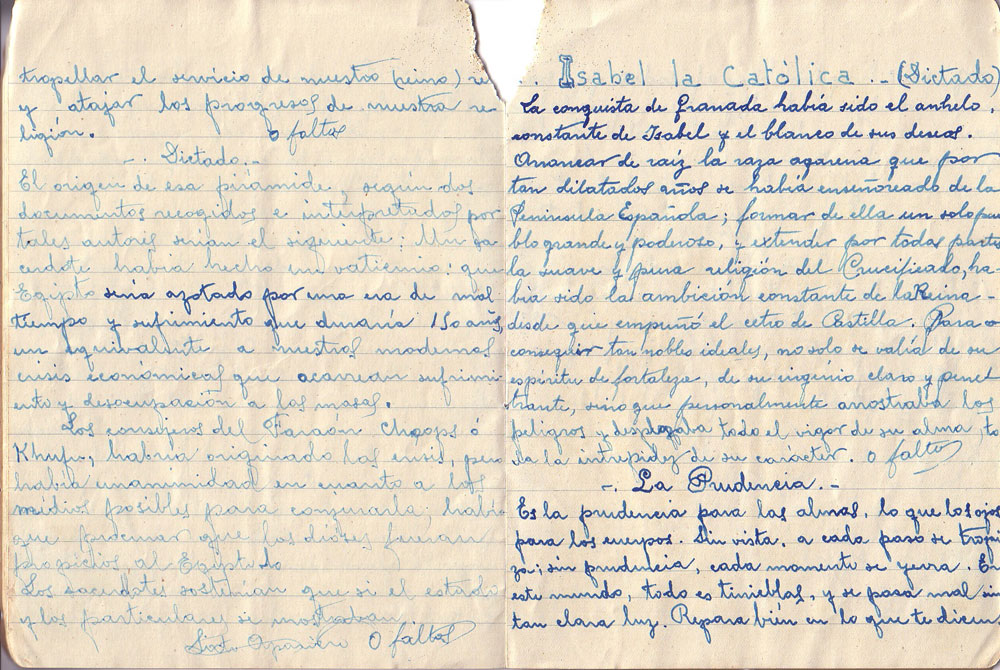 tropellar el servicio de nuestro (reino) re
y atajar los progresos de nuestra re-
ligión. 0 faltas
-. Dictado.-
El origen de esa pirámide, según dos
documentos recogidos e interpretados por
tales autores serían el siguiente: Un sa
cerdote había hecho un vaticinio: que
Egipto sería azotado por una era de mal
tiempo y sufrimiento que duraría 150 años,
un equivalente a nuestras modernas
crisis económicas que acarrean sufrimi-
ento y desocupación a las masas.
Los consejeros del Faraón Cheops ó
Khufu, habría originado las crisis, pero
había unanimidad en cuanto a los
medios posibles para conjurarla; habí-
que procurar que los dioses fueran
propicios, al Egipto
Los sacerdotes sostenían que si el estado
y los particulares se mostraban
0 faltas
.. Isabel la Católica .- (Dictado)
La conquista de Granada había sido el anhelo,
constante de Isabel y el blanco de sus deseos.
Arrancar de raíz la raza agarena que por
tan dilatados años se había enseñoreado de la
Península Española; formar de ella un solo pue
blo grande y poderoso, y extender por todas partes
la suave y pura religión del Crucificado, ha-
bía sido la ambición constante de la Reina-
desde que empuñó el cetro de Castilla. Para
conseguir tan nobles ideales, no solo se valía de su
espíritu de fortaleza, de su ingenio claro y penet
trante, sino que personalmente arrostraba los
peligros y desplegaba todo el vigor de su alma, to
da la intrepidez de su carácter. 0 faltas
-. La Prudencia.-
Es la prudencia para las almas, lo que los ojos
para los cuerpos. Sin vista, a cada paso se tropi
za; sin prudencia, cada momento se yerra. En
este mundo, todo es tinieblas, y se pasa mal sin
tan clara luz. Repara bién en lo que te dicen